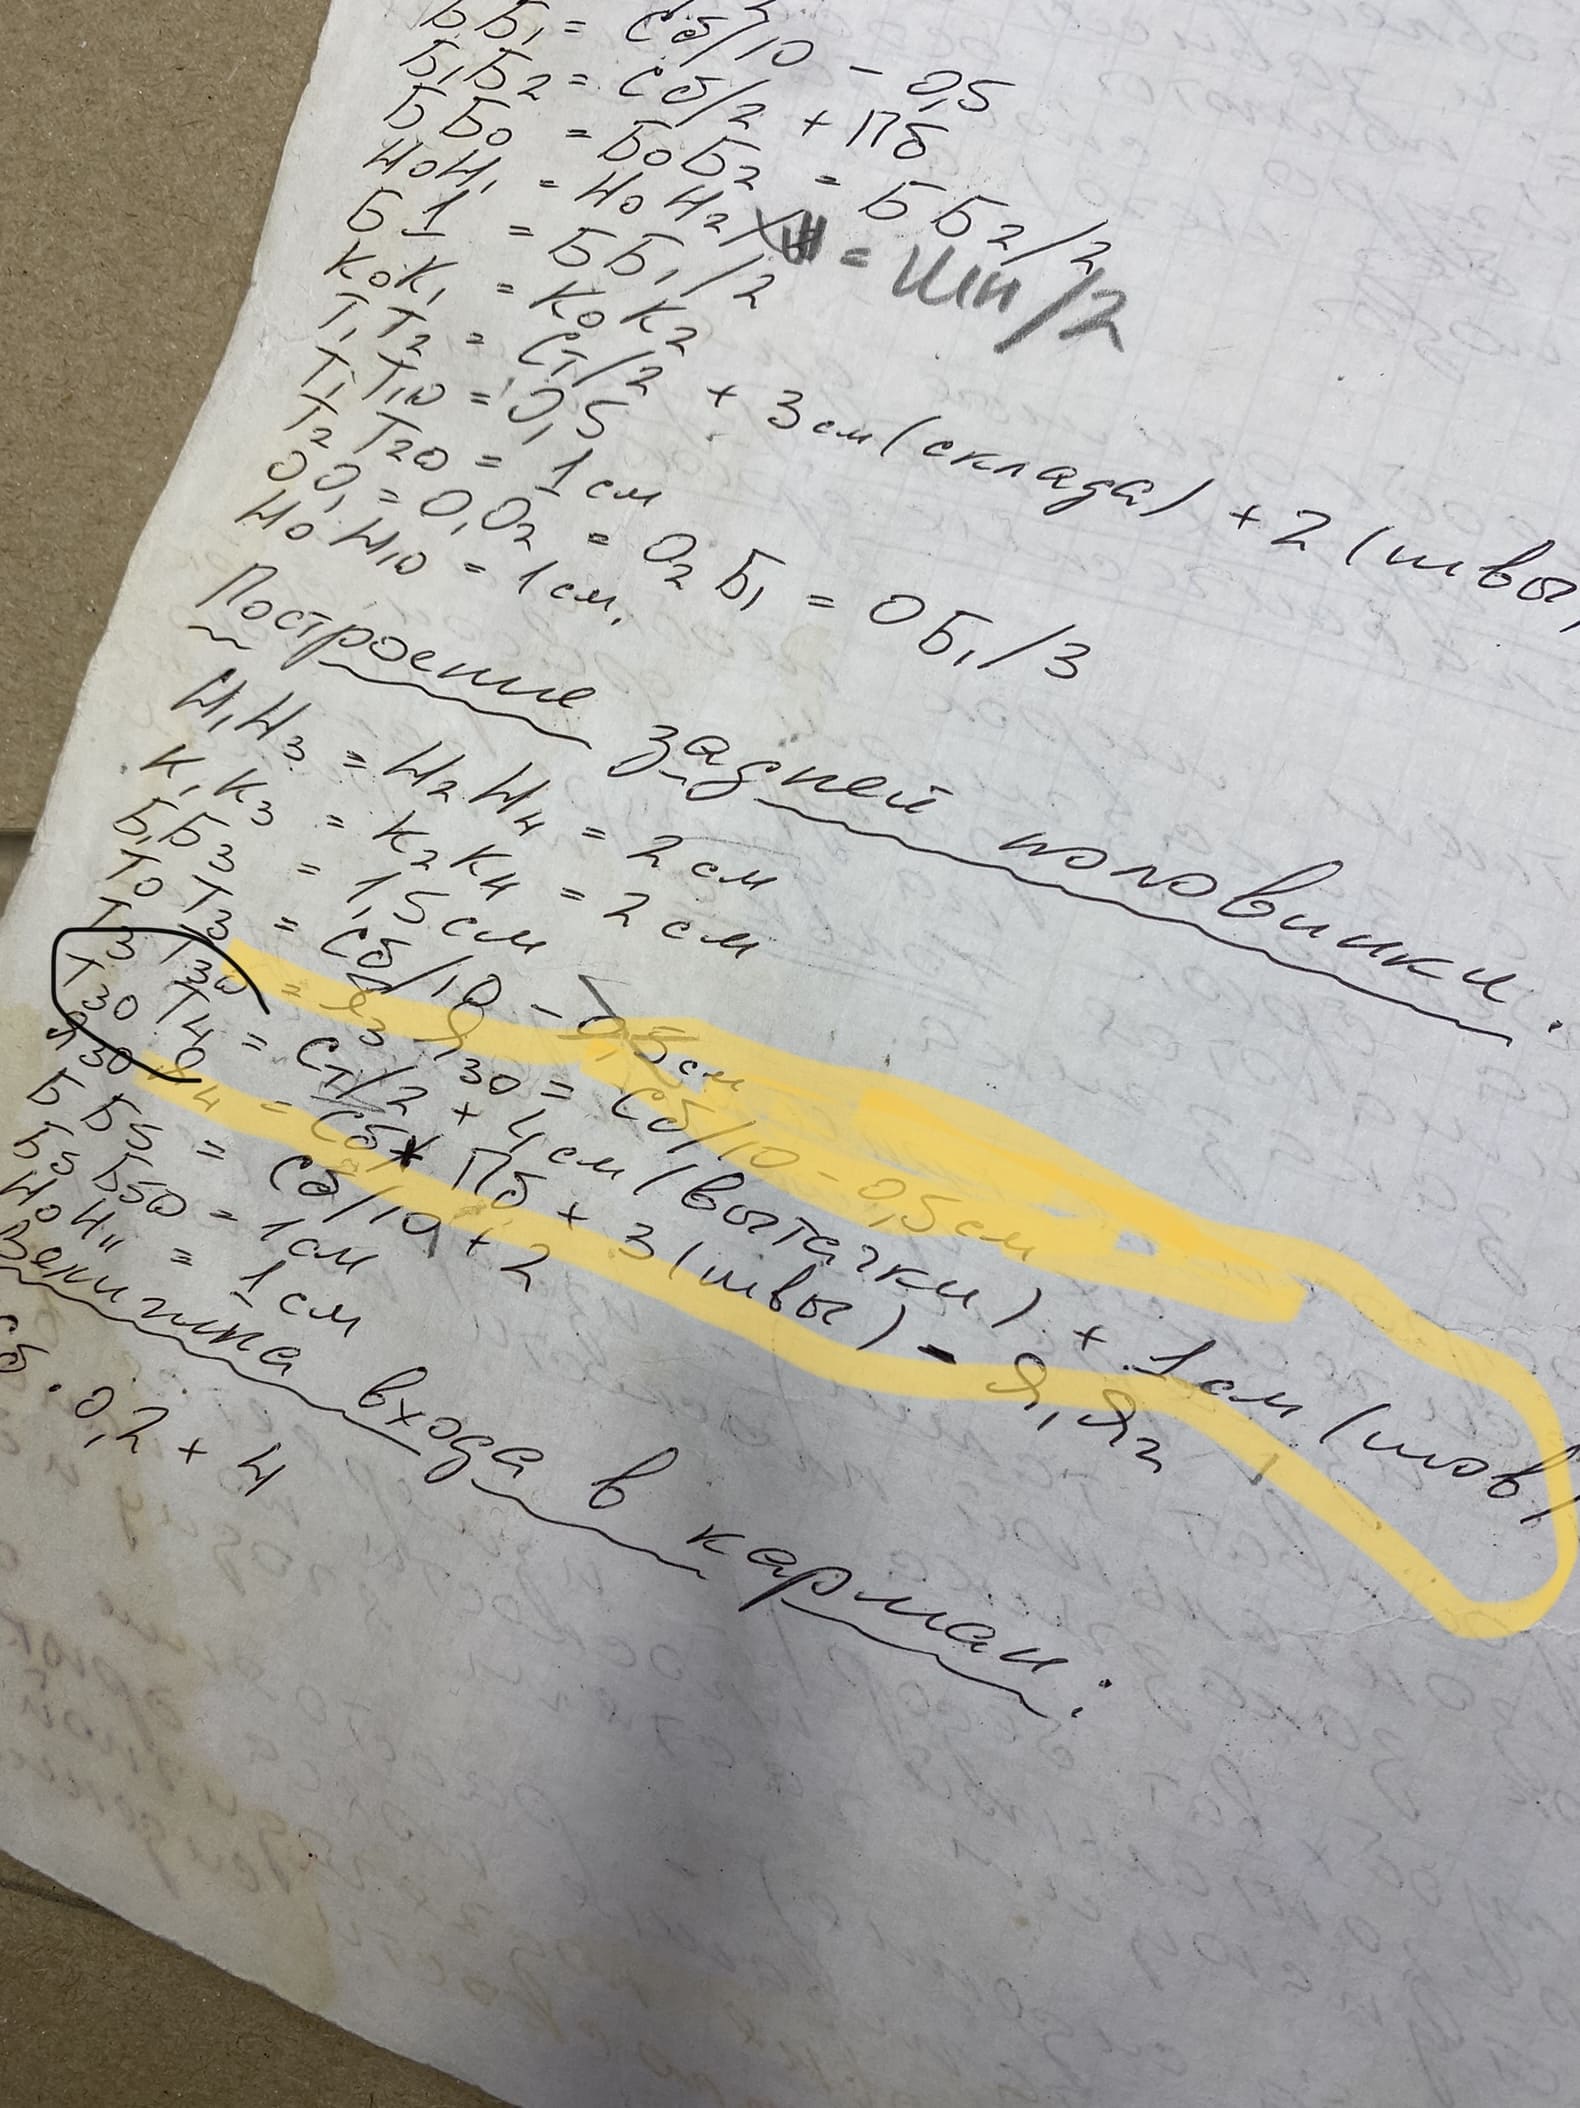 ББ₁ = Сб/10 - 0,5
Б₁Б₂ = Сб/2 + Пб
ББ₀ = Б₀Б₂ = ББ₂/2
Н₀Н₁ = Н₀Н₂ = Шн/2
Б1 = ББ₁/2
К₀К₁ = К₀К₂
Т₁Т₂ = Ст/2 + 3см (склада) + 2 (швы)
Т₁Т₁₀ = 0,5
Т₂Т₂₀ = 1см
ОО₁ = О₁О₂ = О₂Б₁ = ОБ₁/3
Н₀Н₁₀ = 1см.
Построение задней половинки.
Н₁Н₃ = Н₂Н₄ = 2см
К₁К₃ = К₂К₄ = 2см
Б₁Б₃ = 1,5см
Т₀Т₃ = Сб/10 - 0,5см
Т₃Т₃₀ = Я₃Я₃₀ = Сб/10 - 0,5см
Т₃₀Т₄ = Ст/2 + 4см (вытачки) + 1см (шов)
Я₃₀Я₄ = Сб + Пб + 3 (швы) - Я₁Я₂
ББ₅ = Сб/10 + 2
Б₅Б₅₀ = 1см
Н₀Н₁₁ = 1см
Величина входа в карман:
Сб · 0,2 + 4